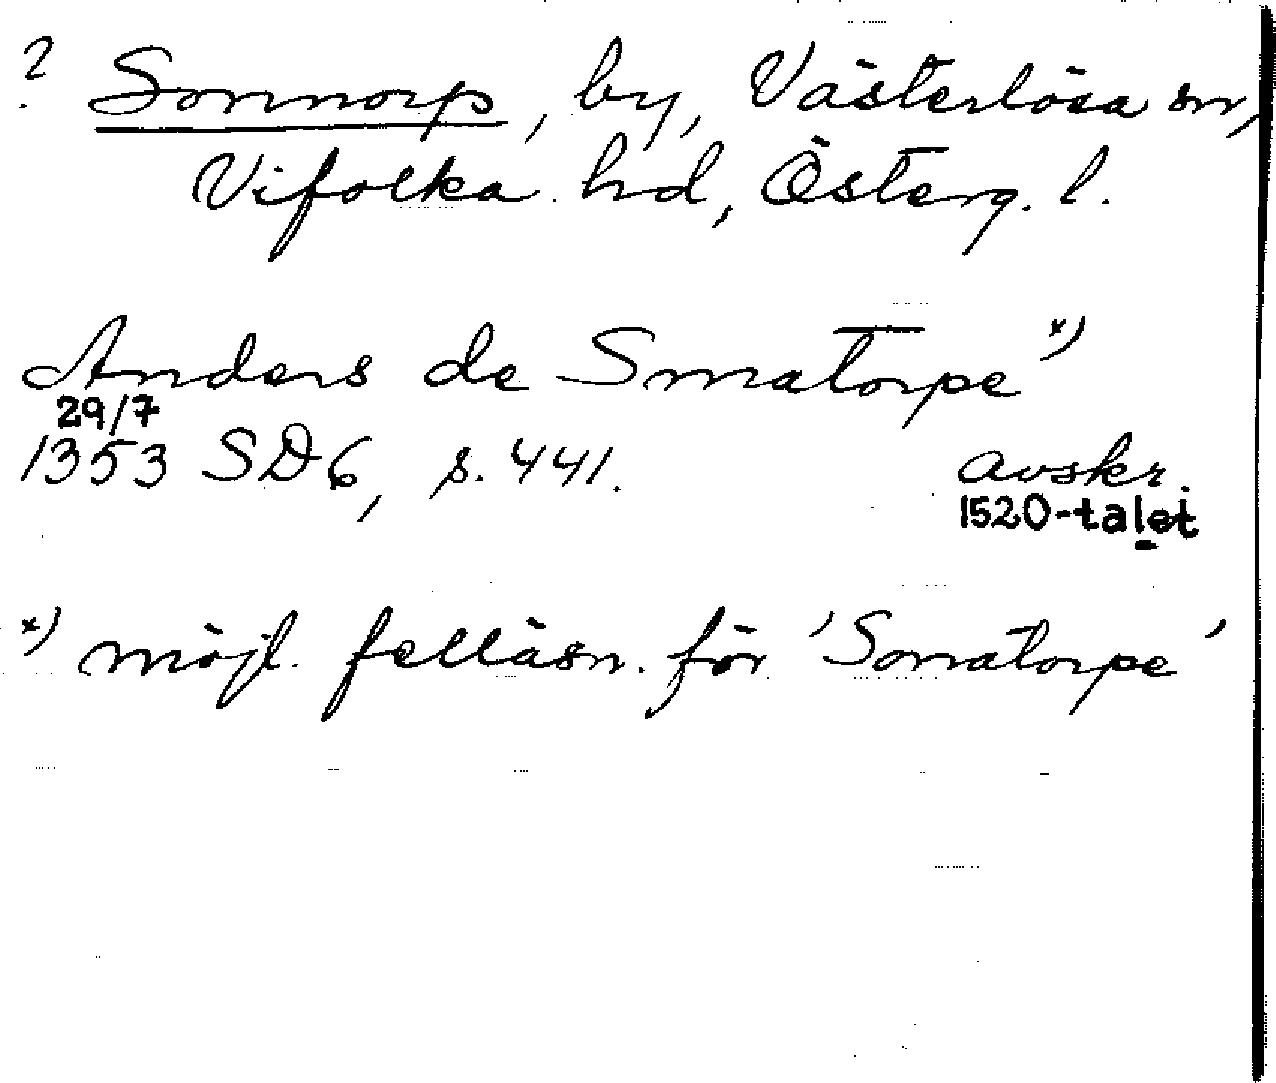 ? Sonnorp, by, Västerlösa sn,
Vifolka hd, Österg. l.
Anders de Smatorpe x)
29/7
1353 SD6, s. 441. avskr.
1520-talet
x) möjl. felläsn. för 'Sonatorpe'